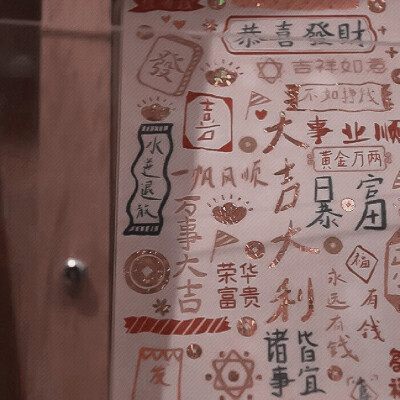 恭喜發財
發
吉祥如意
不如挣钱
喜
大吉大利
事业顺
黄金万两
水逆退散
一帆风顺
暴富
万事大吉
福
荣华
富贵
永远有钱
有钱
诸事皆宜
发
福